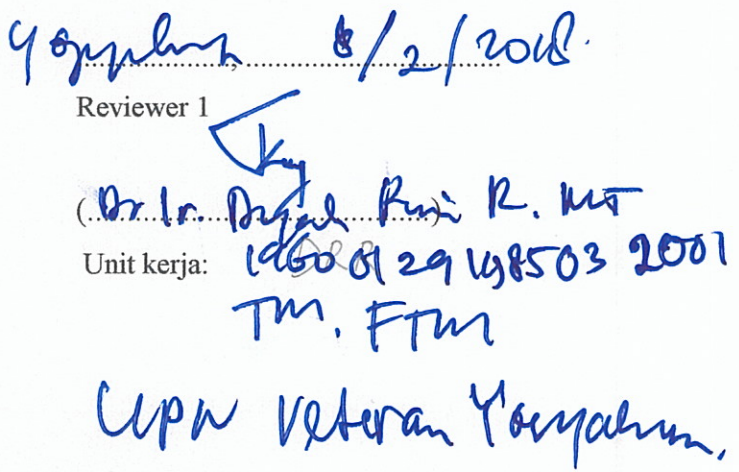 Yogyakarta, 8/2/2018.
Reviewer 1
(Dr Ir. Dyah Rini R. MT)
Unit kerja: 19600129 198503 2001
TM. FTM
UPN Veteran Yogyakarta.